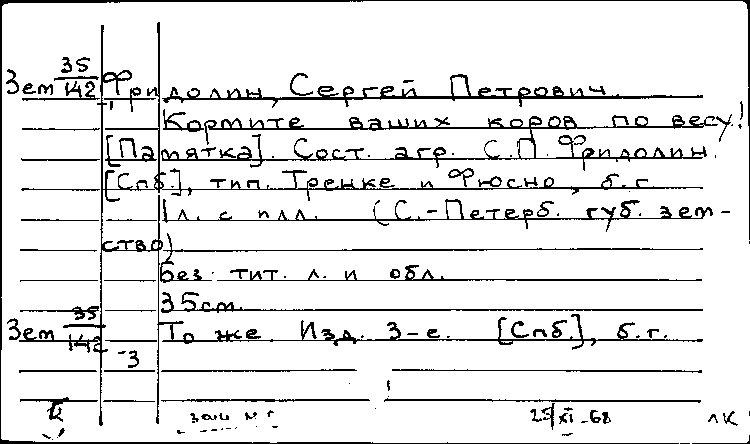 Зем 35/142 Фридолин, Сергей Петрович.
-1 Кормите ваших коров по весу!
[Памятка]. Сост. агр. С.П. Фридолин.
[Спб.], тип. Тренке и Фюсно, б.г.
1 л. с илл. (С.-Петерб. губ. зем-
ство)
Без тит. л. и обл.
35см.
Зем 35/142 -3 То же. Изд. 3-е. [Спб.], б.г.
25/XI-68 лк